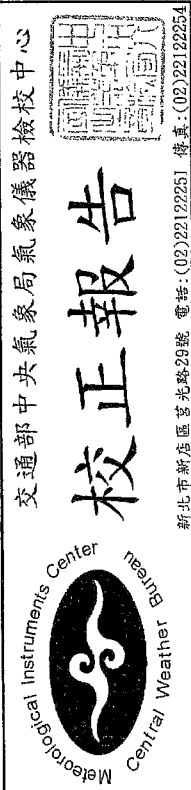 交通部中央氣象局氣象儀器檢校中心
校正報告
新北市新店區莒光路29號 電話:(02)22122251 傳真:(02)22122254
Meteorological Instruments Center
Central Weather Bureau